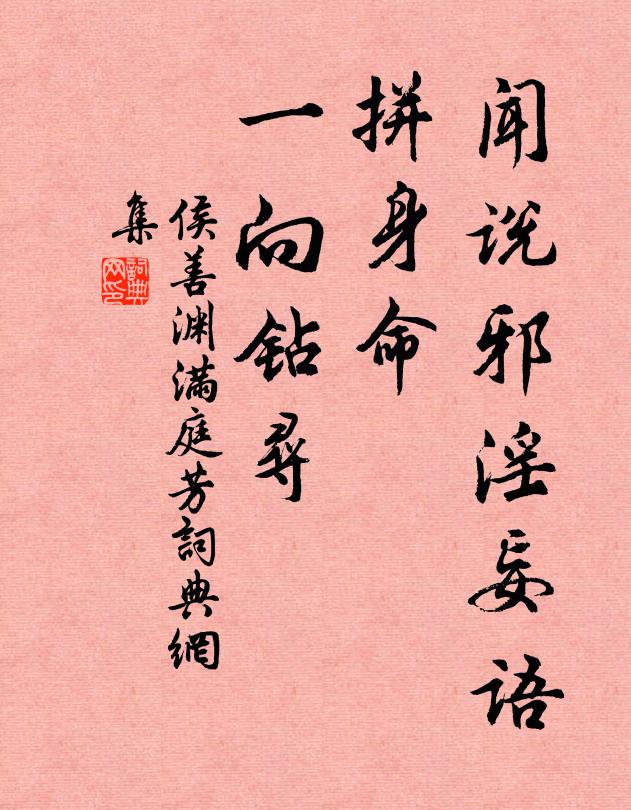 闻说邪淫妄语
拼身命
一向钻寻
侯善渊满庭芳詞典網
集
詞典
网印